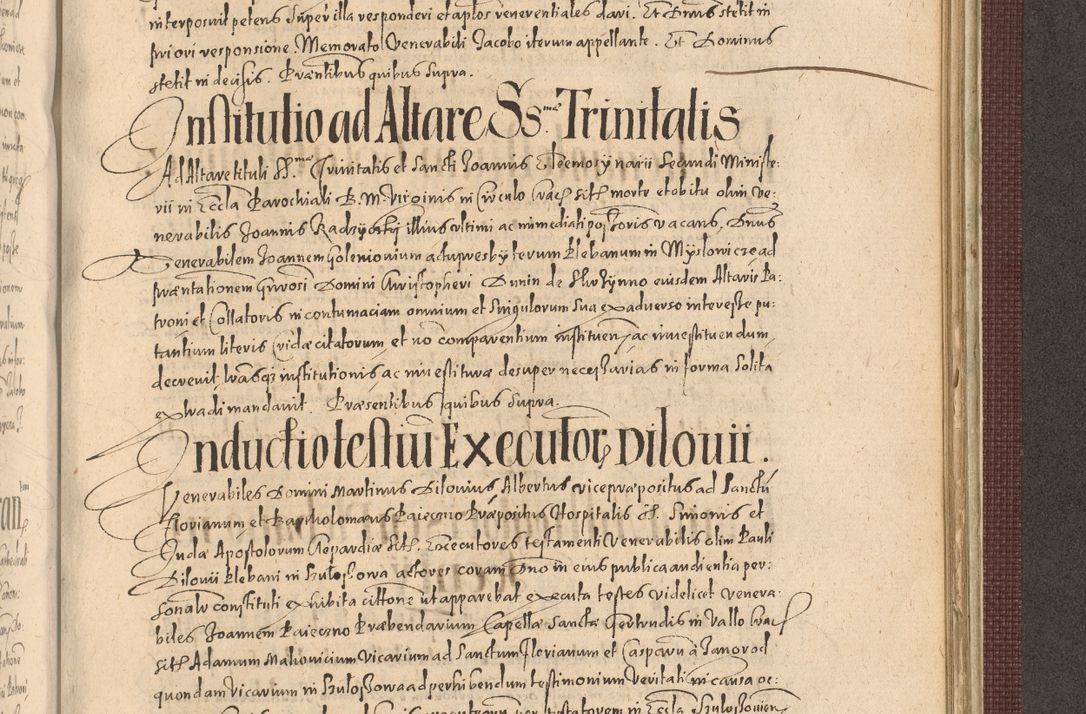 interposuit petens super illa responderi et aplos reverentiales dari. Et Dnus stetit in
priori responsione. Memorato Venerabili Jacobo iterum appellante. Et Dominus
stetit in decisis. Præntibus quibus supra.
Institutio ad Altare Ss.mæ Trinitatis
Ad Altare tituli SS.mæ Trinitatis et Sancti Joannis Eleemosynarii Secundi Ministe:
rii in Eccla Parochiali B. M. Virginis in Circulo Crac. sitæ morte et obitu olim Ve:
nerabilis Joannis Radzyckij illius ultimi ac immediati possessoris vacans, Dnus
Venerabilem Joannem Goleniovium actu presbyterum Plebanum in Myslowicze ad
præntationem Grosi Domini Christopheri Dunin de eiusdem Altaris Pa:
troni et Collatoris in contumaciam omnium et Singulorum sua ex adverso interesse pu:
tantium literis Cridæ citatorum et nō comparentium instituen. ac investituendum
decrevit, lrasq; institutionis ac investituræ desuper necessarias in forma solita
extradi mandavit. Præsentibus quibus supra.
Inductio testiū Executor. Dilovii.
Venerabiles Domini Martinus Dilovius Albertus vicepræpositus ad Sanctū
Florianum et Bartholomæus Paieczno Præpositus Hospitalis SS. Simonis et
Judæ Apostolorum Clepardiæ sitæ. Executores testamenti Venerabilis olim Pauli
Dilovii Plebani in Szulossowa actores coram Dno in eius publica audientia per:
sonalr constituti exhibita cittone ut apparebat executa testes videlicet venera:
biles Joannem Paieczno Præbendarium Capellæ Sanctæ Gertrudis in Vallo Crac.
sitæ Adamum Maliovicium Vicarium ad Sanctum Florianum et Casparū à Janorod
quondam Vicarium in Szulossowa ad perhibendum testimonium Veritati in causa oc: